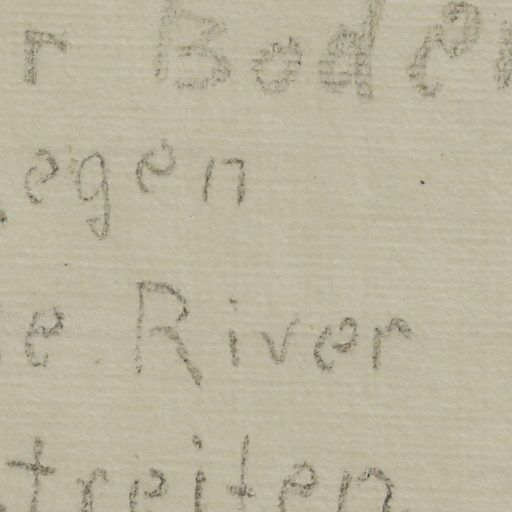 r Boden
egen
e River
treiten